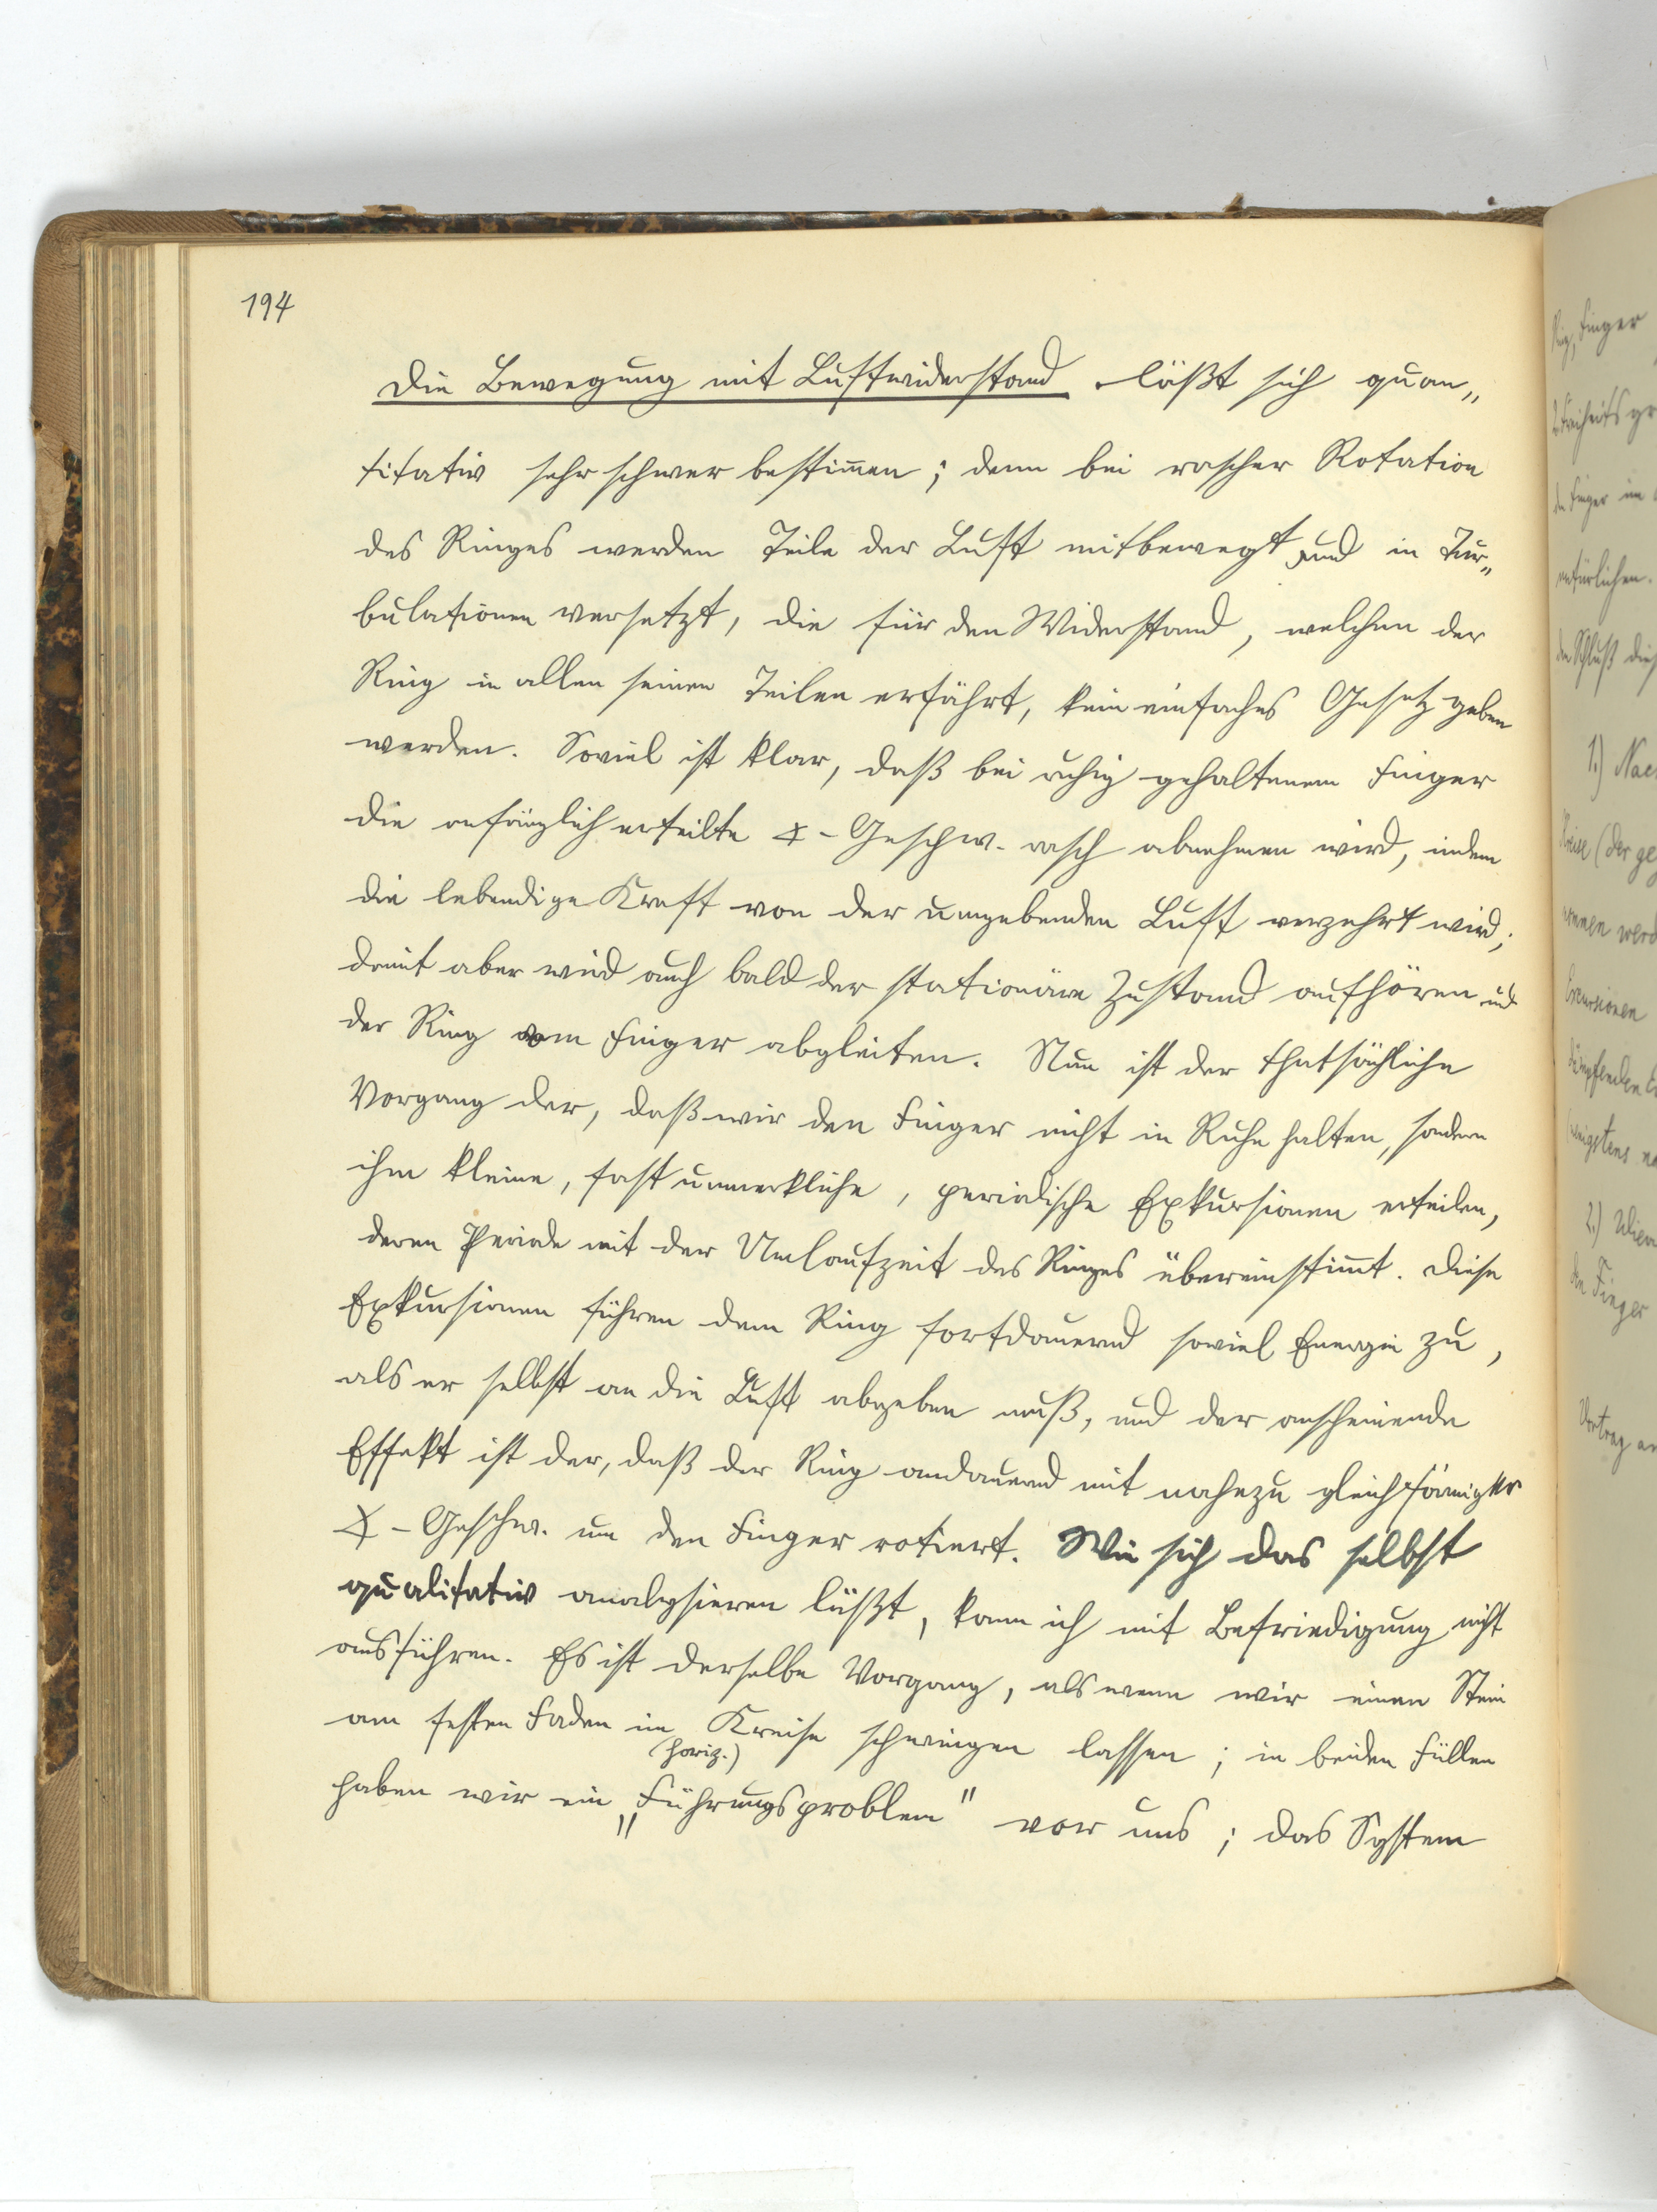 194
Die Bewegung mit Luftwiderstand läßt sich quan„
titativ sehr schwer bestim̅en; denn bei rascher Rotation
des Ringes werden Teile der Luft mitbewegt und in Tur„
bulationen versetzt, die für den Widerstand, welchen der
Ring in allen seinen Teilen erfährt, kein einfaches Gesetz geben
werden. Soviel ist klar, daß bei ruhig gehaltenem Finger
die anfänglich erteilte ∢-Geschw. rasch abnehmen wird, indem
die lebendige Kraft von der umgebenden Luft verzehrt wird;
damit aber wird auch bald der stationäre Zustand aufhören und
der Ring vom Finger abgleiten. Nun ist der thatsächliche
Vorgang der, daß wir den Finger nicht in Ruhe halten, sondern
ihm kleine, fast unmerkliche, periodische Exkursionen erteilen,
deren Periode mit der Umlaufzeit des Ringes übereinstim̅t. Diese
Exkursionen führen dem Ring fortdauernd soviel Energie zu,
als er selbst an die Luft abgeben muß, und der anscheinende
Effekt ist der, daß der Ring andauernd mit nahezu gleichförmiger
∢-Geschw. um den Finger rotiert. Wie sich das selbst
qualitativ analysieren läßt, kann ich mit Befriedigung nicht
ausführen. Es ist derselbe Vorgang, als wenn wir einen Stein
am festen Faden im Kreise schwingen lassen; in beiden Fällen
(horiz.)
haben wir ein „Führungsproblem" vor uns; das System
Ring, Finger
2 Freiheitsgr
den Finger im
natürlichen.
den Schluß dies
1.) Nac
Kreise (der ge
nommen werd
Excursionen
dämpfenden
wenigstens
2.)
den Finger
Vortrag